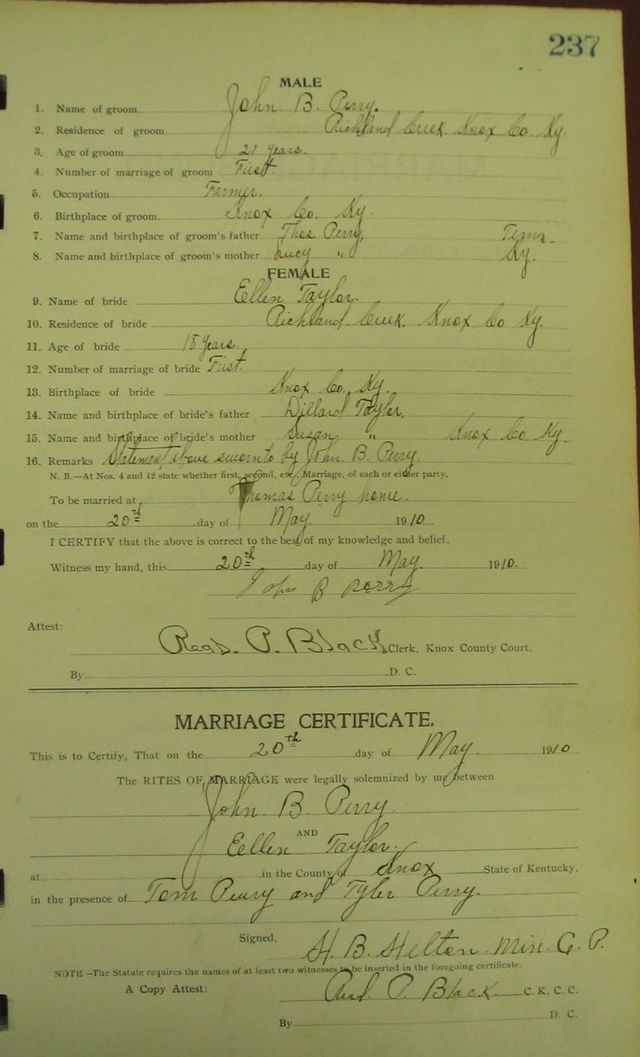 237
MALE
1. Name of groom John B. Perry.
2. Residence of groom Richland Creek Knox Co. Ky.
3. Age of groom 21 years.
4. Number of marriage of groom First.
5. Occupation Farmer.
6. Birthplace of groom Knox Co. Ky.
7. Name and birthplace of groom's father Thos Perry, Tenn.
8. Name and birthplace of groom's mother Lucy " Ky.
FEMALE
9. Name of bride Ellen Taylor.
10. Residence of bride Richland Creek, Knox Co Ky.
11. Age of bride 18 years.
12. Number of marriage of bride First.
13. Birthplace of bride Knox Co. Ky.
14. Name and birthplace of bride's father Dillard Taylor,
15. Name and birthplace of bride's mother Susan " Knox Co. Ky.
16. Remarks Statement above sworn to by John B. Perry.
N. B.—At Nos. 4 and 12 state whether first, second, etc., Marriage, of each or either party.
To be married at Thomas Perry home.
on the 20th day of May 1910
I CERTIFY that the above is correct to the best of my knowledge and belief.
Witness my hand, this 20th day of May 1910.
John B Perry
Attest:
Read. P. Black Clerk, Knox County Court.
By D. C.
MARRIAGE CERTIFICATE.
This is to Certify, That on the 20th day of May. 1910
The RITES OF MARRIAGE were legally solemnized by me between
John B. Perry.
AND
Eellen Taylor.
at in the County of Knox State of Kentucky,
in the presence of Tom Peury and Tyler Perry.
Signed,
H. B. Helton. Min. G. P.
NOTE—The Statute requires the names of at least two witnesses to be inserted in the foregoing certificate.
A Copy Attest: Read. P. Black C. K. C. C.
By D. C.